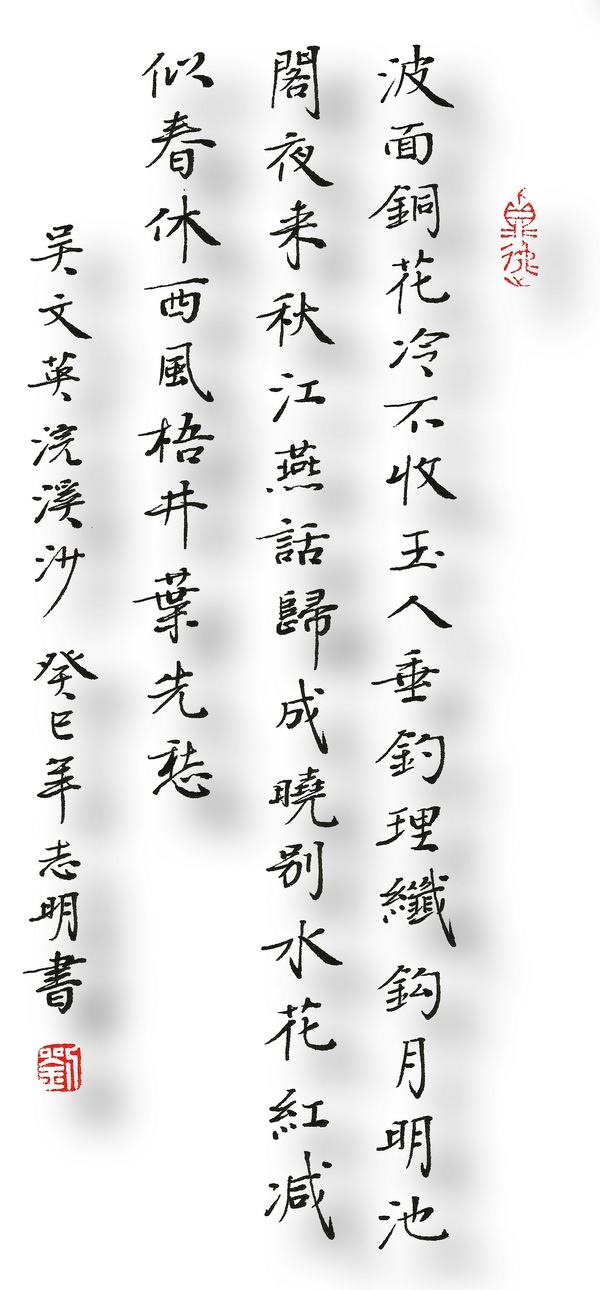 波面銅花冷不收玉人垂釣理纖鈎月明池
閣夜来秋江燕話歸成曉别水花紅減
似春休西風梧井葉先愁
吴文英浣溪沙 癸巳年志明書
劉